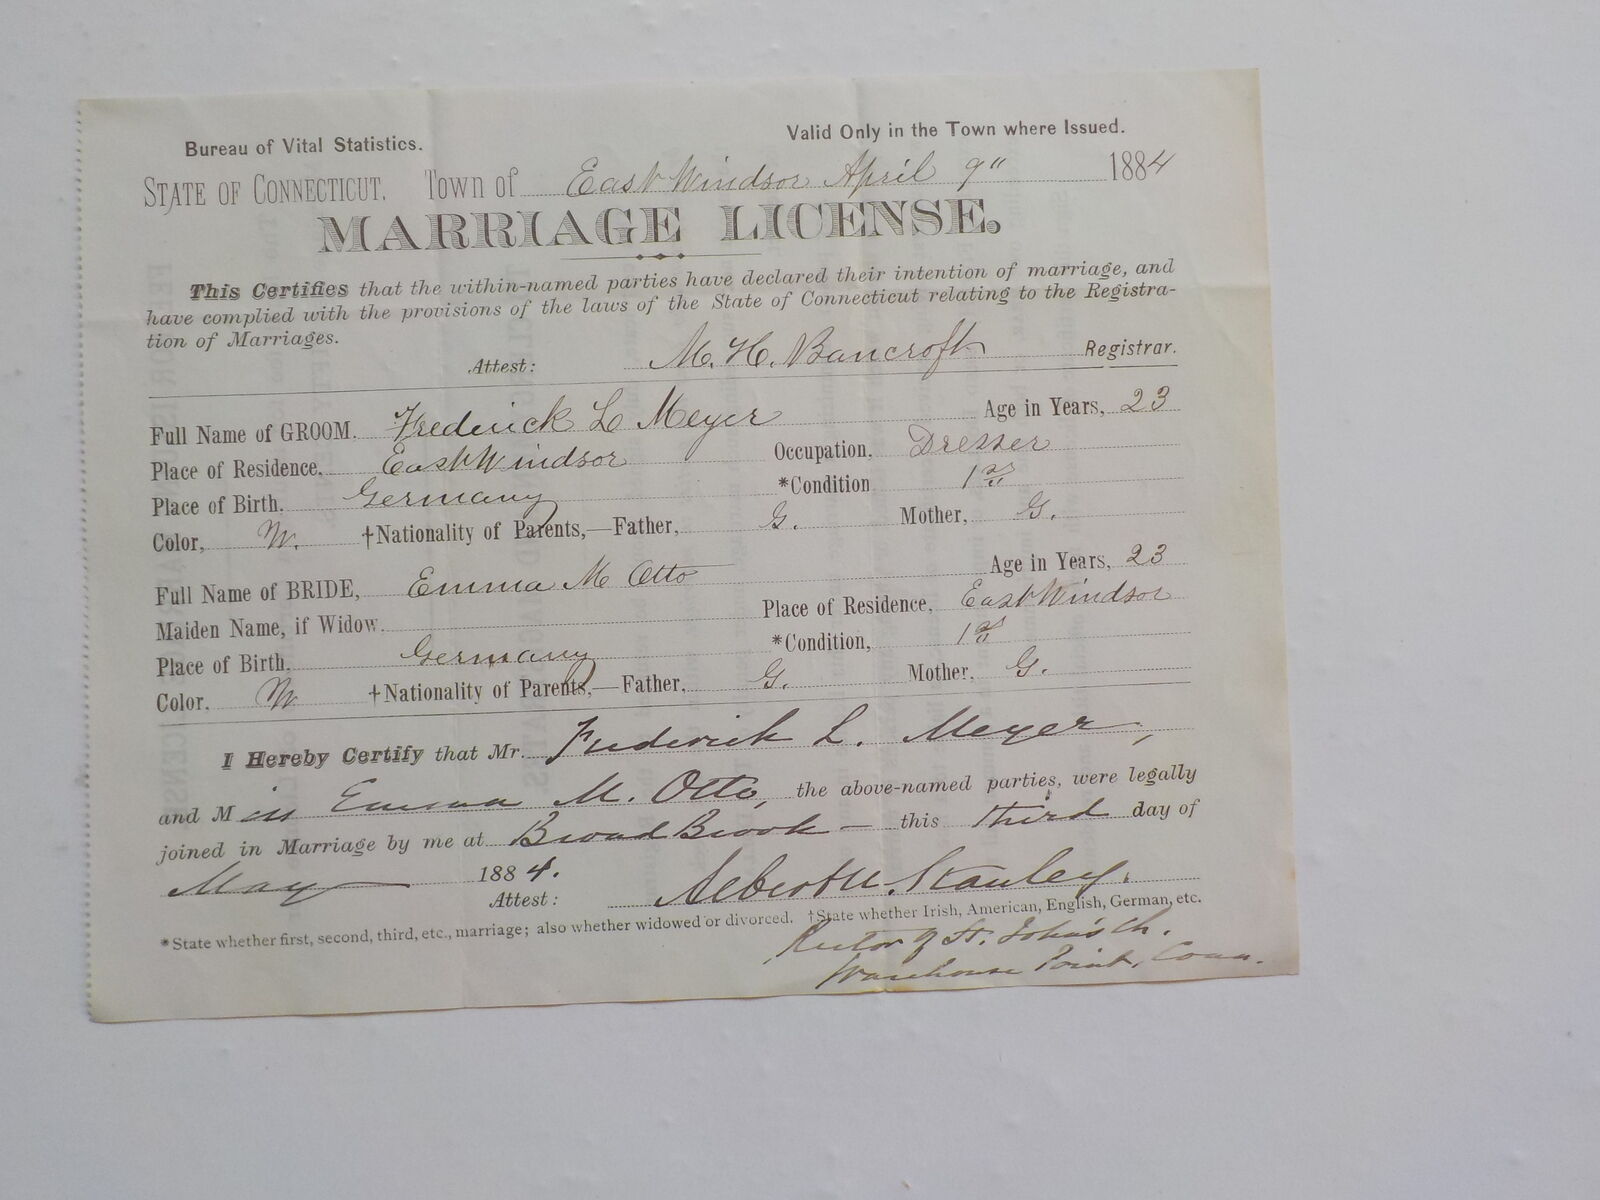 Bureau of Vital Statistics. Valid Only in the Town where Issued.
STATE OF CONNECTICUT, Town of East Windsor April 9" 1884
MARRIAGE LICENSE.
This Certifies that the within-named parties have declared their intention of marriage, and
have complied with the provisions of the laws of the State of Connecticut relating to the Registra-
tion of Marriages.
Attest: M. H. Bancroft Registrar.
Full Name of GROOM, Frederick L Meyer Age in Years, 23
Place of Residence, East Windsor Occupation, Dresser
Place of Birth, Germany *Condition 1st
Color, W. †Nationality of Parents,—Father, G. Mother, G.
Full Name of BRIDE, Emma M Otto Age in Years, 23
Maiden Name, if Widow, Place of Residence, East Windsor
Place of Birth, Germany *Condition, 1st
Color, W †Nationality of Parents,—Father, G. Mother, G.
I Hereby Certify that Mr. Frederick L. Meyer,
and Miss Emma M. Otto, the above-named parties, were legally
joined in Marriage by me at Broad Brook — this third day of
May 1884.
Attest: Albert U. Stanley.
*State whether first, second, third, etc., marriage; also whether widowed or divorced. †State whether Irish, American, English, German, etc.
Rector of St. John's Ch.
Warehouse Point, Conn.